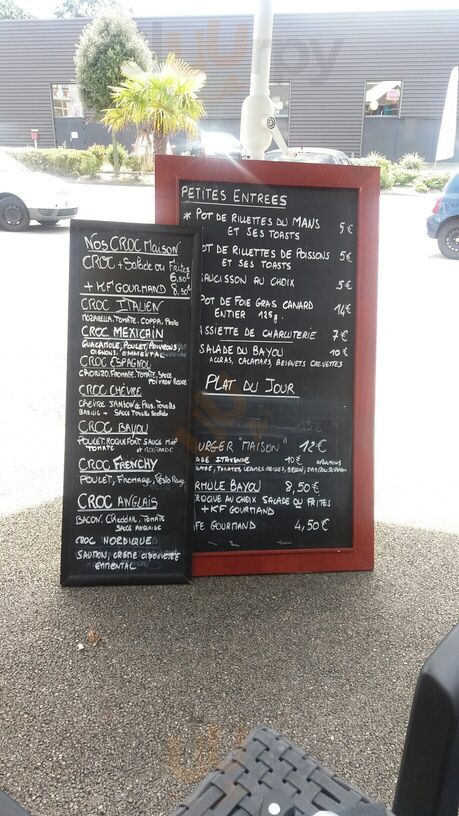 Nos CROC Maison
CROC + Salade ou Frites
6.50€
+ KF GOURMAND 8,50€
CROC ITALIEN
MOZARELLA, TOMATE, COPPA, Pesto
CROC MEXICAIN
GUACAMOLE, POULET, POIVRONS,
OIGNONS, EMMENTAL
CROC ESPAGNOL
CHORIZO, FROMAGE, TOMATE, SAUCE
POIVRON ROUGE
CROC CHÈVRE
CHÈVRE JAMBON de PAYS, Tomates
BASILIC + SAUCE
CROC BAYOU
POULET, ROQUEFORT SAUCE
TOMATE
CROC FRENCHY
POULET, FROMAGE, Pesto Rouge
CROC ANGLAIS
BACON, CHEDDAR, TOMATE
SAUCE ANGLAISE
CROC NORDIQUE
SAUMON, CRÈME CIBOULETTE
EMMENTAL
PETITES ENTREES
* POT DE RILLETTES DU MANS 5€
ET SES TOASTS
OT DE RILLETTES DE POISSONS 5€
ET SES TOASTS
AUCISSON AU CHOIX 5€
POT DE FOIE GRAS CANARD 14€
ENTIER 125g.
ASSIETTE DE CHARCUTERIE 7€
SALADE DU BAYOU 10€
ACCRAS, CALAMARS, BEIGNETS CREVETTES
PLAT DU JOUR
URGER "MAISON" 12€
10€
TOMATES, LEGUMES GRILLES,
RMULE BAYOU 8,50€
CROQUE AU CHOIX SALADE OU FRITES
+ KF GOURMAND
FE GOURMAND 4,50€